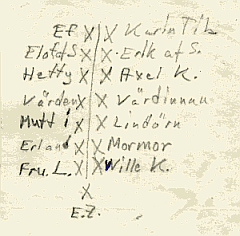 Ef X X Karin Tib
Elof S X X Erik af S.
Hetty X X Axel K.
Värden X X Värdinnan
Mutti X X Lindörn
Erland X X Mormor
Fru. L. X X Wille K.
X
E.Z.